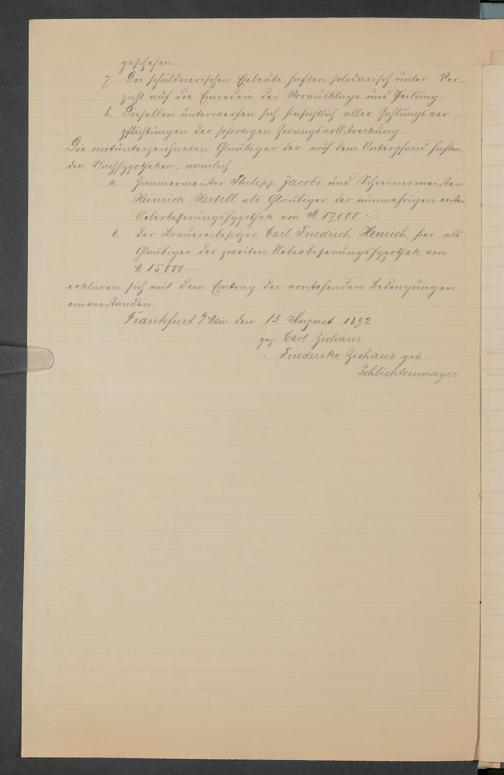 geschehen.
7. Die schuldnerischen Eheleute haften solidarisch unter Ver-
zicht auf die Einreden der Vorausklage und Theilung.
8. Dieselben unterwerfen sich hinsichtlich aller Zahlungsver-
pflichtungen der sofortigen Zwangsvollstreckung.
Die mitunterzeichneten Gläubiger der auf dem Unterpfand haften-
den Nachhypotheken, nämlich
a. Zimmermeister Philipp Jacobi und Schreinermeister
Heinrich Hertell als Gläubiger der nunmehrigen ersten
Ueberbesserungshypothek von M 17000.–
b. der Brauereibesitzer Carl Friedrich Henrich, hier als
Gläubiger der zweiten Ueberbesserungshypothek von
M 15000.–
erklären sich mit dem Eintrag der vorstehenden Bedingungen
einverstanden.
Frankfurt a/Main den 13. August 1892
gez. Carl Zichaus
" Friederike Zichäus geb
Schlichtenmayer